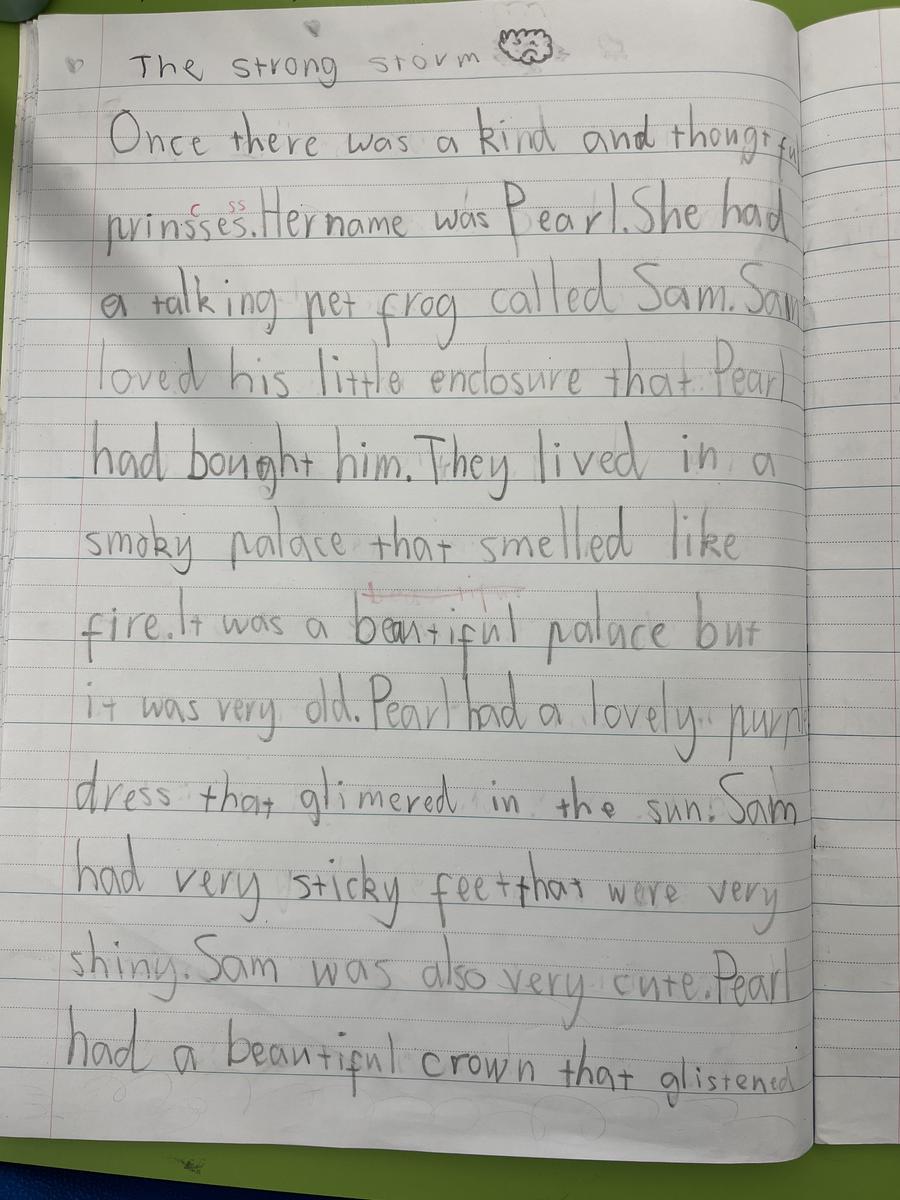 The strong storm
Once there was a kind and thougtful
prinsses. Her name was Pearl. She had
c ss
a talking pet frog called Sam. Sam
loved his little enclosure that Pearl
had bought him. They lived in a
smoky palace that smelled like
fire. It was a beautiful palace but
it was very old. Pearl had a lovely
dress that glimered in the sun. Sam
had very sticky feet that were very
shiny. Sam was also very cute. Pearl
had a beautiful crown that glistened